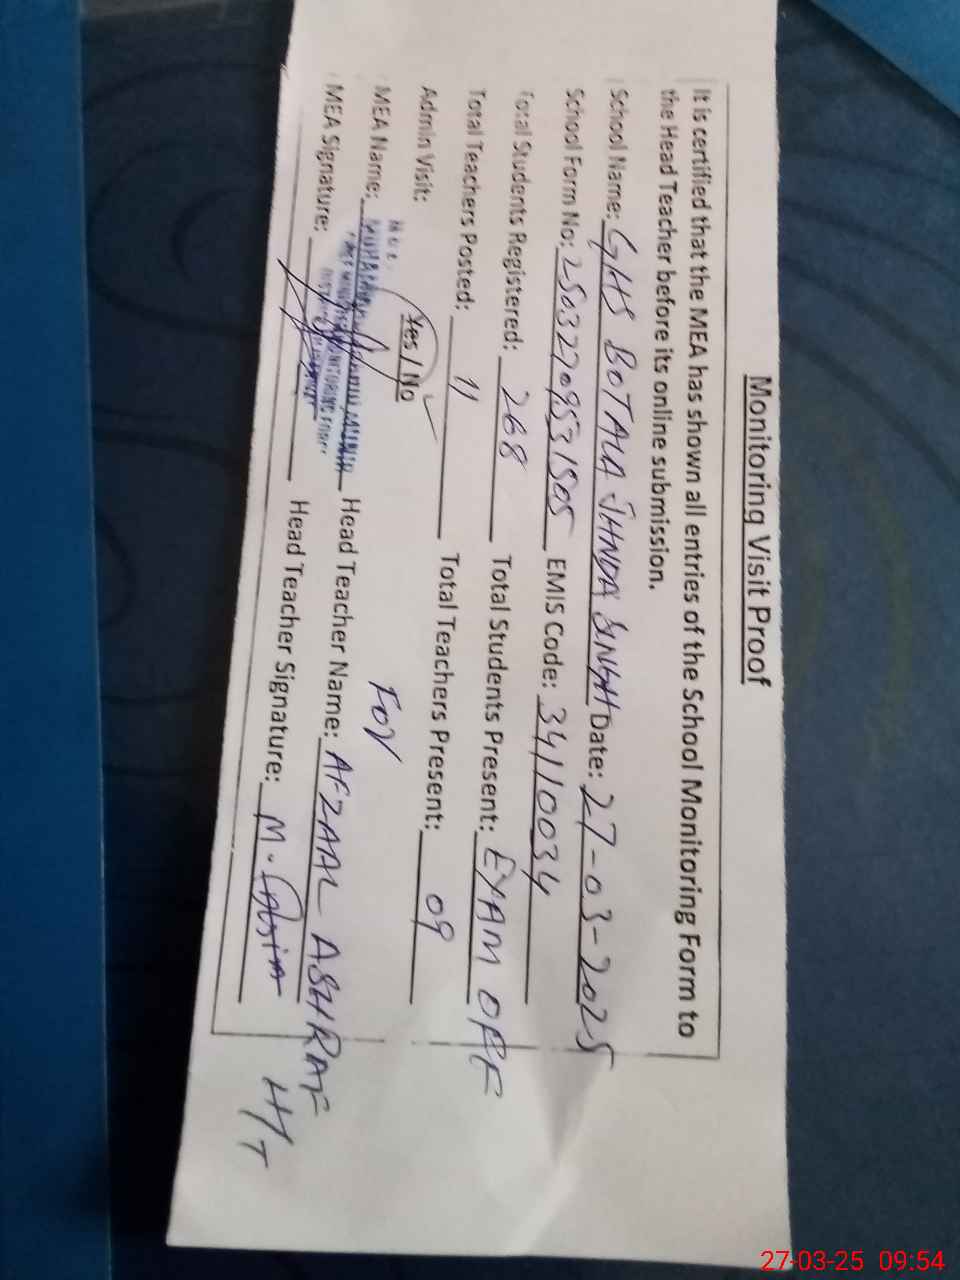 Monitoring Visit Proof
It is certified that the MEA has shown all entries of the School Monitoring Form to
the Head Teacher before its online submission.
School Name: GHS BOTALA JHNDA SINGH Date: 27-03-2025
School Form No: 25032709531505 EMIS Code: 34110034
Total Students Registered: 268 Total Students Present: EXAM OFF
Total Teachers Posted: 11 Total Teachers Present: 09
Admin Visit: Yes / No
For
MEA Name: MUHAMMAD Head Teacher Name: AFZAAL ASHRAF
MONITORING FORCE
MEA Signature: Head Teacher Signature: M. Qasim H/T
27-03-25 09:54